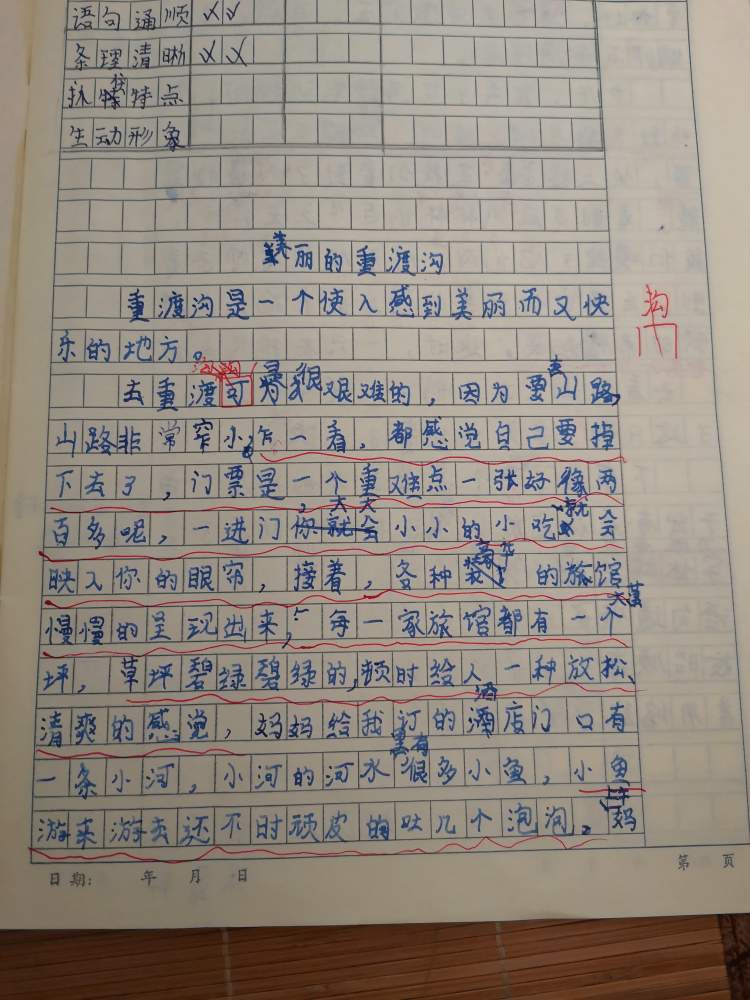 语句通顺 ✓✓
条理清晰 ✓✓
抓特点
生动形象
美丽的重渡沟
重渡沟是一个使人感到美丽而又快
沟
乐的地方。
去重渡沟的是很艰难的，因为要走山路，
山路非常窄小，乍一看，都感觉自己要掉
下去了，门票是一个重难点一张好像两
百多呢，一进门你大大小小的小吃就会
映入你的眼帘，接着，各种豪华装的旅馆
慢慢的呈现出来，每一家旅馆都有一个大草
坪，草坪碧绿碧绿的，顿时给人一种放松、
清爽的感觉，妈妈给我订的酒店门口有
一条小河，小河的河水里有很多小鱼，小鱼
游来游去还不时顽皮的吐几个泡泡。上午妈
日期： 年 月 日
第 页